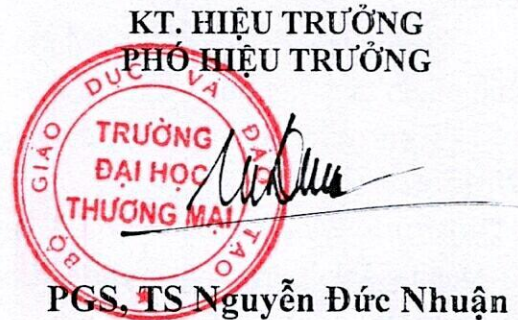 KT. HIỆU TRƯỞNG
PHÓ HIỆU TRƯỞNG
BỘ GIÁO DỤC VÀ ĐÀO TẠO
TRƯỜNG
ĐẠI HỌC
THƯƠNG MẠI
PGS, TS Nguyễn Đức Nhuận